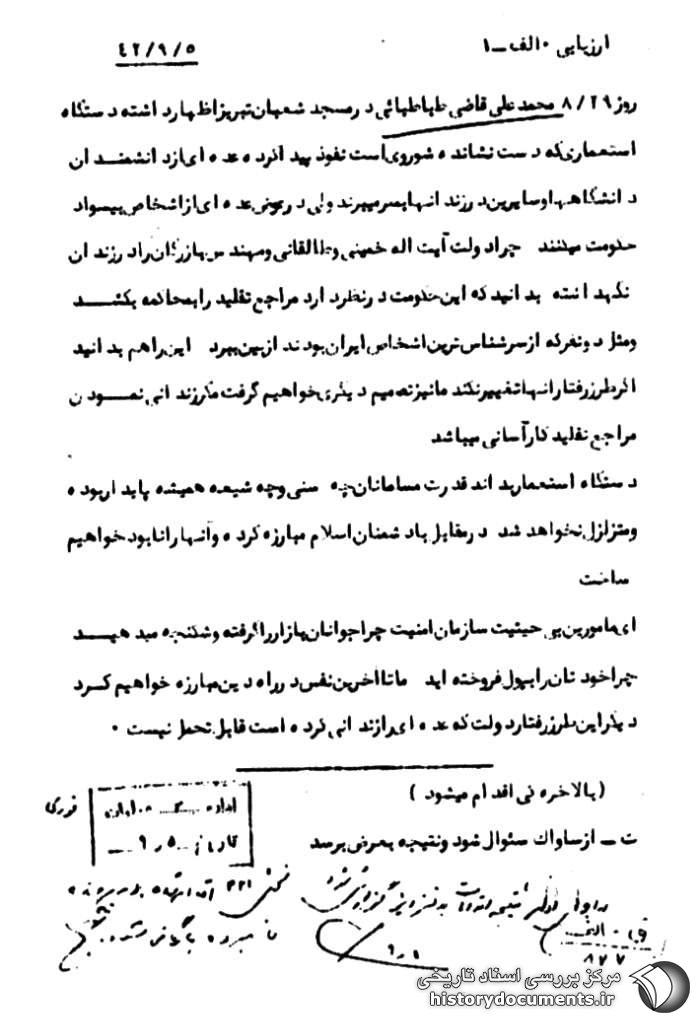 ارزیابی ۰ الف ــ ۱
۴۲/۹/۵
روز ۸/۲۹ محمد علی قاضی طباطبائی در مسجد شعبان تبریز اظهار داشته دستگاه
استعماری که دست نشانده شوروی است نفوذ پیدا کرده عده ای از دانشمندان
دانشگاهها و سایرین در زندانها بسر میبرند ولی در عوض عده ای از اشخاص بیسواد
حکومت میکنند چرا دولت آیت اله خمینی و طالقانی و مهندس بازرگان را در زندان
نگهداشته بدانید که این حکومت در نظر دارد مراجع تقلید را بمحاکمه بکشد
و مثل دو نفر که از سرشناس ترین اشخاص ایران بودند از بین ببرد این را هم بدانید
اگر طرز رفتار انها تغییر نکند ما نیز تصمیم دیگری خواهیم گرفت مگر زندانی نمودن
مراجع تقلید کار آسانی میباشد
دستگاه استعمار بداند قدرت مسلمانان چه سنی و چه شیعه همیشه پایدار بوده
و متزلزل نخواهد شد در مقابل با دشمنان اسلام مبارزه کرده و آنها را نابود خواهیم
ساخت
ای مامورین بی حیثیت سازمان امنیت چرا جوانان بازار را گرفته و شکنجه میدهید
چرا خودتان را بپول فروخته اید ما تا آخرین نفس در راه دین مبارزه خواهیم کرد
دیگر این طرز رفتار دولت که عده ای را زندانی کرده است قابل تحمل نیست ۰
(بالاخره نی اقدام میشود )
ت ــ از ساواک سئوال شود و نتیجه بعرض برسد
فوری
اداره
تاریخ ۵ ر ۹
۳۲۱
ق ۰ الف
۸۷۷
۹ ر ۱
مرکز بررسی اسناد تاریخی
historydocuments.ir